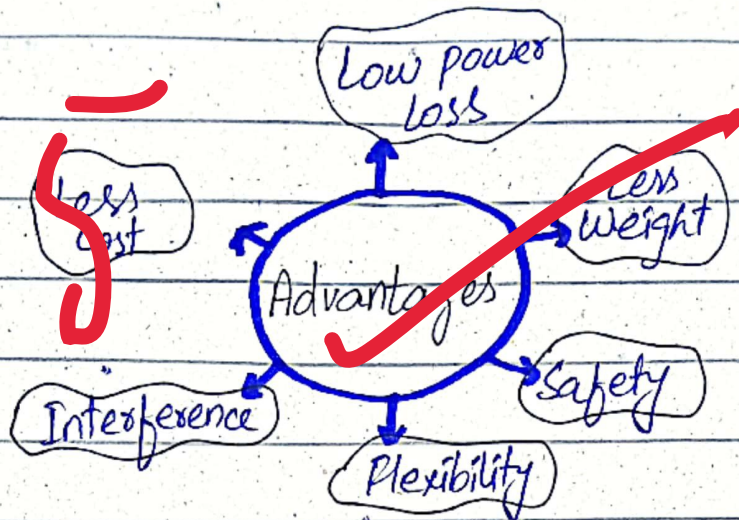 Low power
loss
Less
Cost
Less
Weight
Advantages
Safety
Interference
Plexibility
5